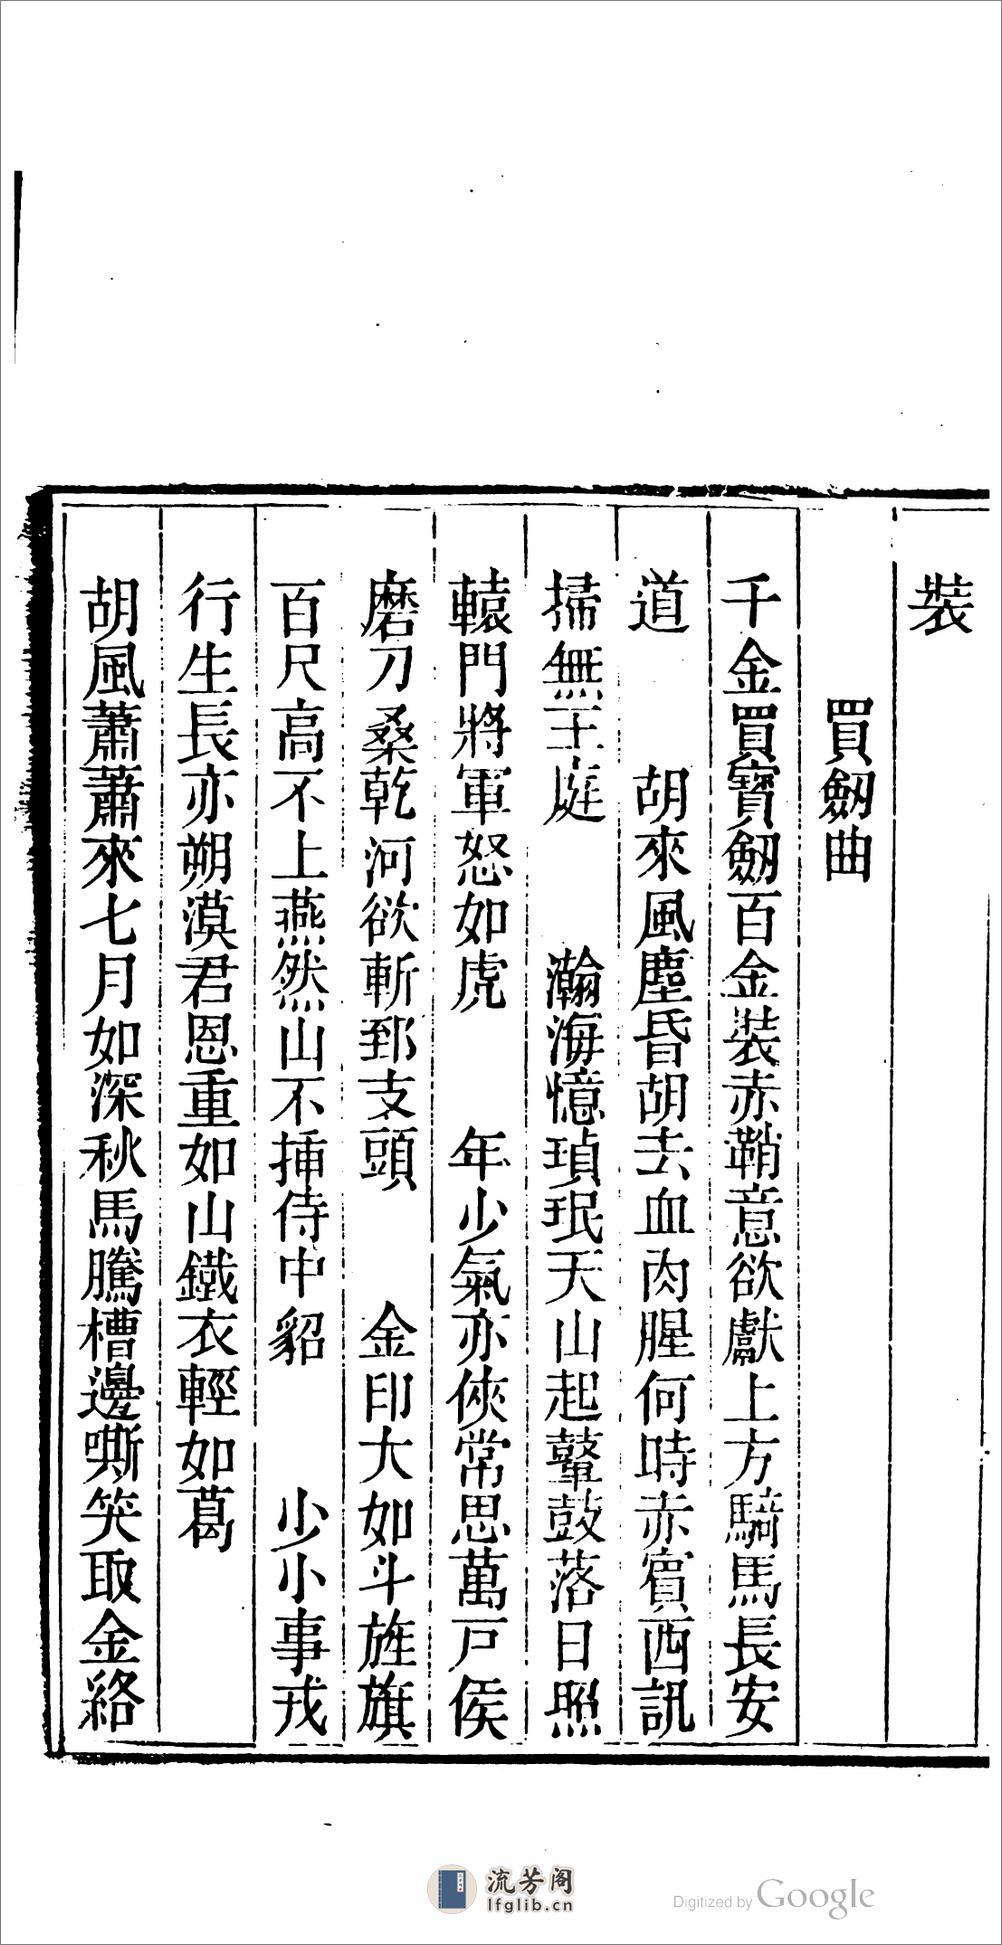 裝
買劒曲
千金買寶劒百金裝赤鞘意欲獻上方騎馬長安
道　胡來風塵昏胡去血肉腥何時赤賓西訊
掃無王庭　瀚海憶瑱珉天山起鼙鼓落日照
轅門將軍怒如虎　年少氣亦俠常思萬戸侯
磨刀桑乾河欲斬郅支頭　金印大如斗旌旗
百尺高不上燕然山不揷侍中貂　少小事戎
行生長亦朔漠君恩重如山鐵衣輕如葛
胡風蕭蕭來七月如深秋馬騰槽邊嘶笑取金絡
流芳阁
lfglib.cn
Digitized by Google